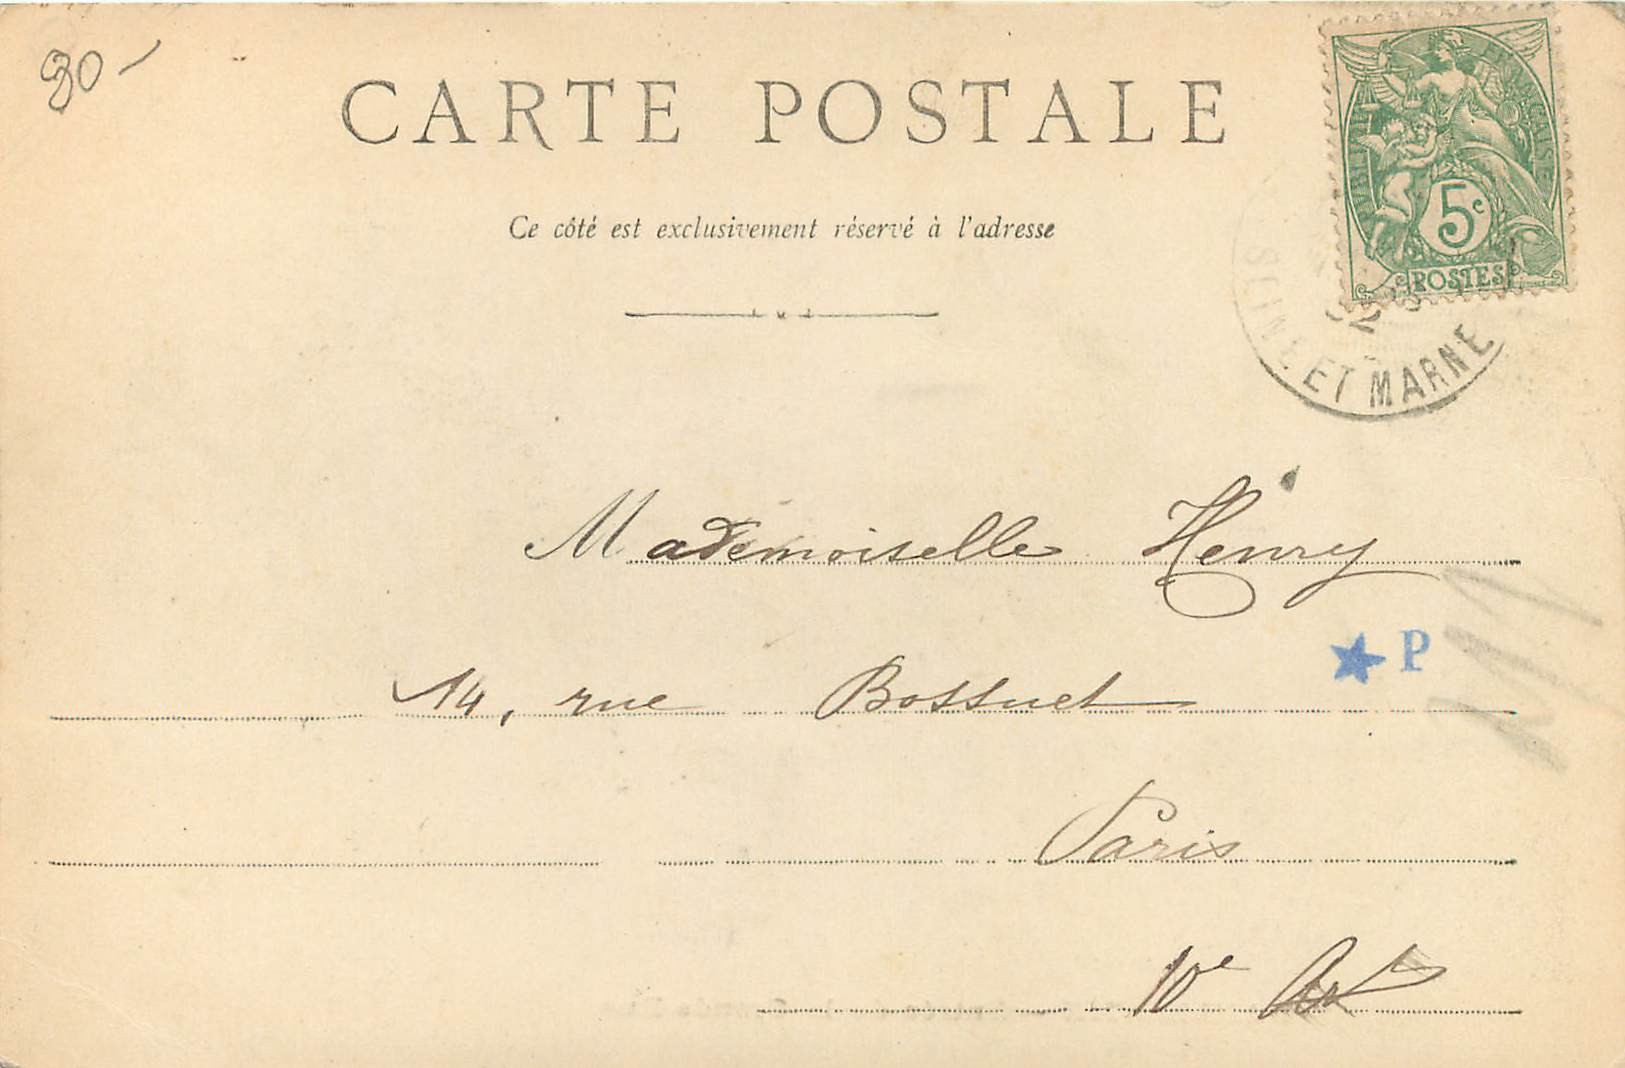 30-
CARTE POSTALE
RÉPUBLIQUE FRANÇAISE
5c
POSTES
Ce côté est exclusivement réservé à l'adresse
SEINE ET MARNE
Mademoiselle Henry
P
14, rue Bossuet
Paris
10e Art